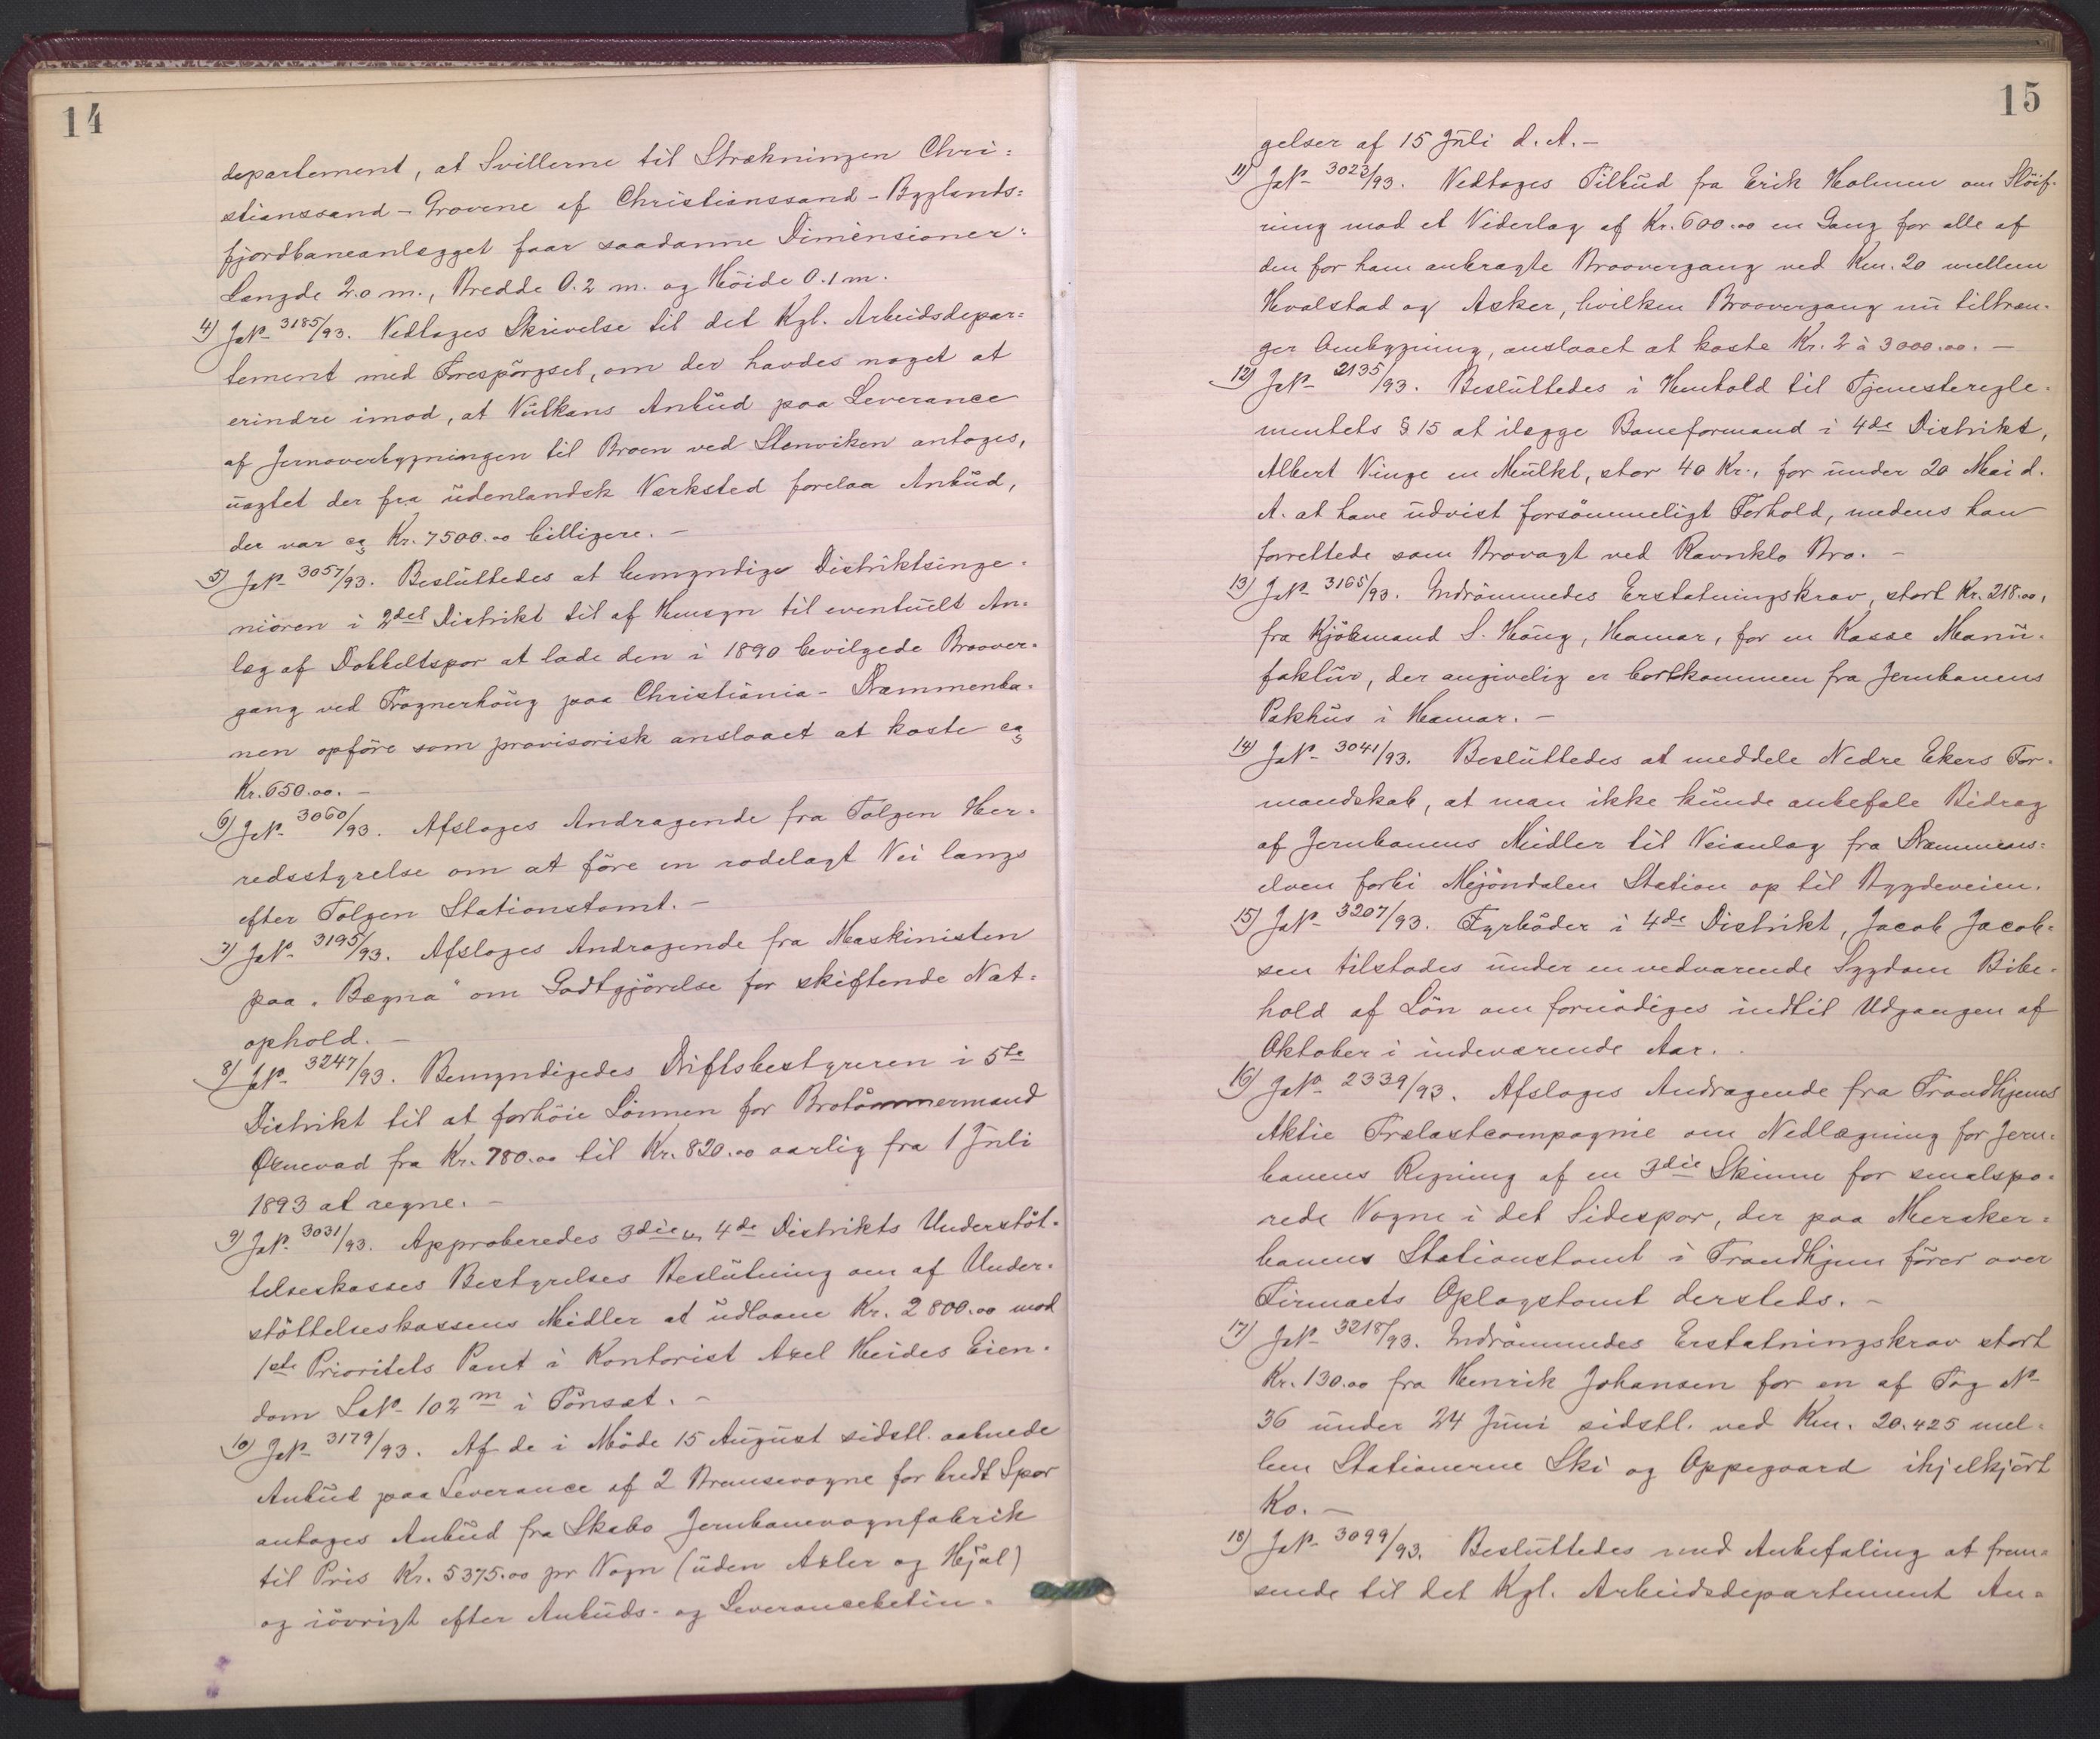 14
departement, at Svillerne til Strækningen Chri=
stianssand - Grovene af Christianssand - Bygglands=
fjordbaneanlægget faar saadanne Dimensioner:
Længde 2.0 m., Bredde 0.2 m. og Höide 0.1 m.
4) JNo 3185/93. Vedtoges Skrivelse til det Kgl. Arbeidsdepar=
tement med Forespörgsel, om der havdes noget at
erindre imod, at Vulkans Anbud paa Leverance
af Jernoverbygningen til Broen ved Stenviken antoges,
uagtet der fra udenlandsk Værksted forelaa Anbud,
der var ca Kr. 7500.00 billigere. -
5) JNo 3057/93. Besluttedes at bemyndige Distriktsinge=
niören i 2det Distrikt til af Hensyn til eventuelt An=
læg af Dobbeltspor at lade den i 1890 bevilgede Broover=
gang ved Frognerhoug paa Christiania - Drammenba=
nen opföre som provisorisk anslaaet at koste ca
Kr. 650.00. -
6) JNo 3060/93. Afsloges Andragende fra Tolgen Her=
redsstyrelse om at före en rodelagt Vei langs
efter Tolgen Stationstomt. -
7) JNo 3195/93. Afsloges Andragende fra Maskinisten
paa "Bægna" om Godtgjörelse for skiftende Nat=
ophold. -
8) JNo 3247/93. Bemyndigedes Driftsbestyreren i 5te
Distrikt til at forhöie Lönnen for Brotömmermand
Øxnevad fra Kr. 780.00 til Kr. 820.00 aarlig fra 1 Juli
1893 at regne. -
9) JNo 3031/93. Approberedes 3die og 4de Distrikts Understöt=
telseskasses Bestyrelses Beslutning om af Under=
stöttelseskassens Midler at udlaane Kr. 2800.00 mod
1ste Prioritets Pant i Kontorist Axel Heides Eien=
dom LNo 102m i Tönset. -
10) JNo 3179/93. Af de i Möde 15 August sidstl. aabnede
Anbud paa Leverance af 2 Bremsevogne for bredt Spor
antoges Anbud fra Skabo Jernbanevognfabrik
til Pris Kr. 5375.00 pr Vogn (uden Axler og Hjul)
og iövrigt efter Anbuds- og Leverancebetin=
15
gelser af 15 Juli d. A. -
11) JNo 3023/93. Vedtoges Tilbud fra Erik Holmen om Slöif=
ning mod et Vederlag af Kr. 600.00 en Gang for alle af
den for ham anbragte Broovergang ved Km. 20 mellem
Hvalstad og Asker, hvilken Broovergang nu tiltræn=
ger Ombygning, anslaaet at koste Kr. 2 à 3000.00. -
12) JNo 2135/93. Besluttedes i Henhold til Tjenesteregle=
mentets § 15 at ilægge Baneformand i 4de Distrikt,
Albert Vinge en Mulkt, stor 40 Kr., for under 20 Mai d.
A. at have udvist forsömmeligt Forhold, medens han
forrettede som Brovagt ved Ravnklo Bro. -
13) JNo 3165/93. Indrömmedes Erstatningskrav, stort Kr. 218.00,
fra Kjöbmand S. Houg, Hamar, for en Kasse Manu=
faktur, der angivelig er bortkommen fra Jernbanens
Pakhus i Hamar. -
14) JNo 3041/93. Besluttedes at meddele Nedre Ekers For=
mandskab, at man ikke kunde anbefale Bidrag
af Jernbanens Midler til Veianlæg fra Drammens=
elven forbi Mjöndalen Station op til Bygdeveien.
15) JNo 3207/93. Fyrböder i 4de Distrikt, Jacob Jacob=
sen tilstodes under en vedvarende Sygdom Bibe=
hold af Lön om fornödiges indtil Udgangen af
Oktober i indeværende Aar.
16) JNo 2339/93. Afsloges Andragende fra Trondhjems
Aktie Trælastcompagnie om Nedlægning for Jern=
banens Regning af en 3die Skinne for smalspo=
rede Vogne i det Sidespor, der paa Meraker=
banens Stationstomt i Trondhjem förer over
Firmaets Oplagstomt dersteds. -
17) JNo 3218/93. Indrömmedes Erstatningskrav stort
Kr. 130.00 fra Henrik Johansen for en af Tog No
36 under 24 Juni sidstl. ved Km. 20.425 mel=
lem Stationerne Ski og Oppegaard ihjelkjört
Ko. -
18) JNo 3099/93. Besluttedes med Anbefaling at frem=
sende til det Kgl. Arbeidsdepartement An=